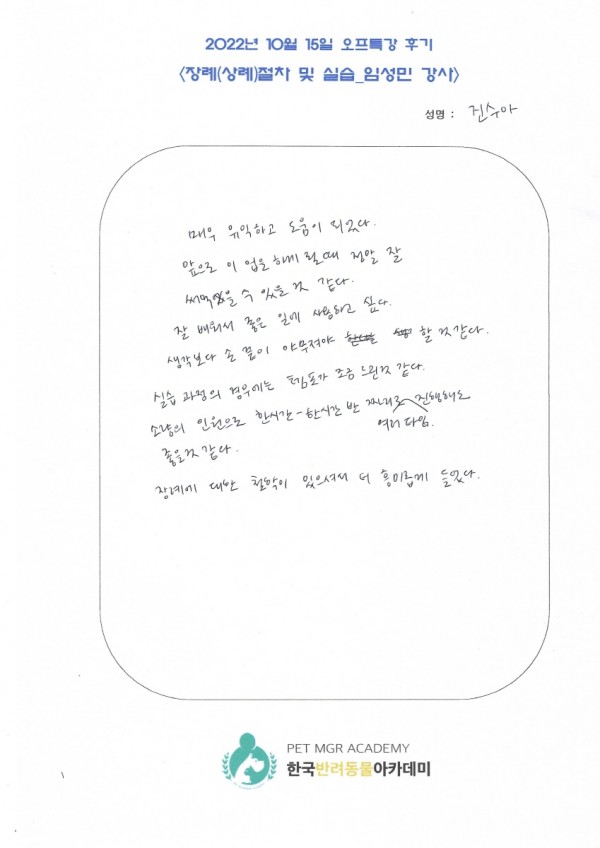 2022년 10월 15일 오프특강 후기
<장례(상례)절차 및 실습_임성민 강사>
성명 : 진수아
매우 유익하고 도움이 되었다.
앞으로 이 업을 하게 될때 정말 잘
써먹을 수 있을것 같다.
잘 배워서 좋은 일에 사용하고 싶다.
생각보다 손 끝이 야무져야 할 것 같다.
실습 과정의 경우에는 템포가 조금 느린것 같다.
소량의 인원으로 한시간-한시간 반 짜리로 여러 타임 진행해도
좋을것 같다.
장례에 대한 철학이 있으셔서 더 흥미롭게 들었다.
PET MGR ACADEMY
한국반려동물아카데미